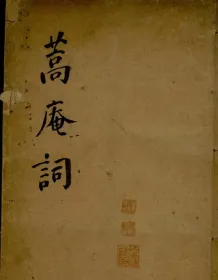 蒿庵詞